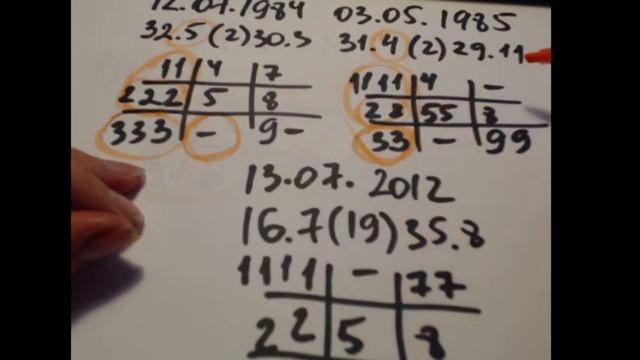 12.07.1984
32.5(2)30.3
11 4 7
222 5 8
333 - 9-
03.05.1985
31.4(2)29.11
1111 4 -
22 55 8
33 - 99
13.07.2012
16.7(19)35.8
1111 - 77
22 5 8